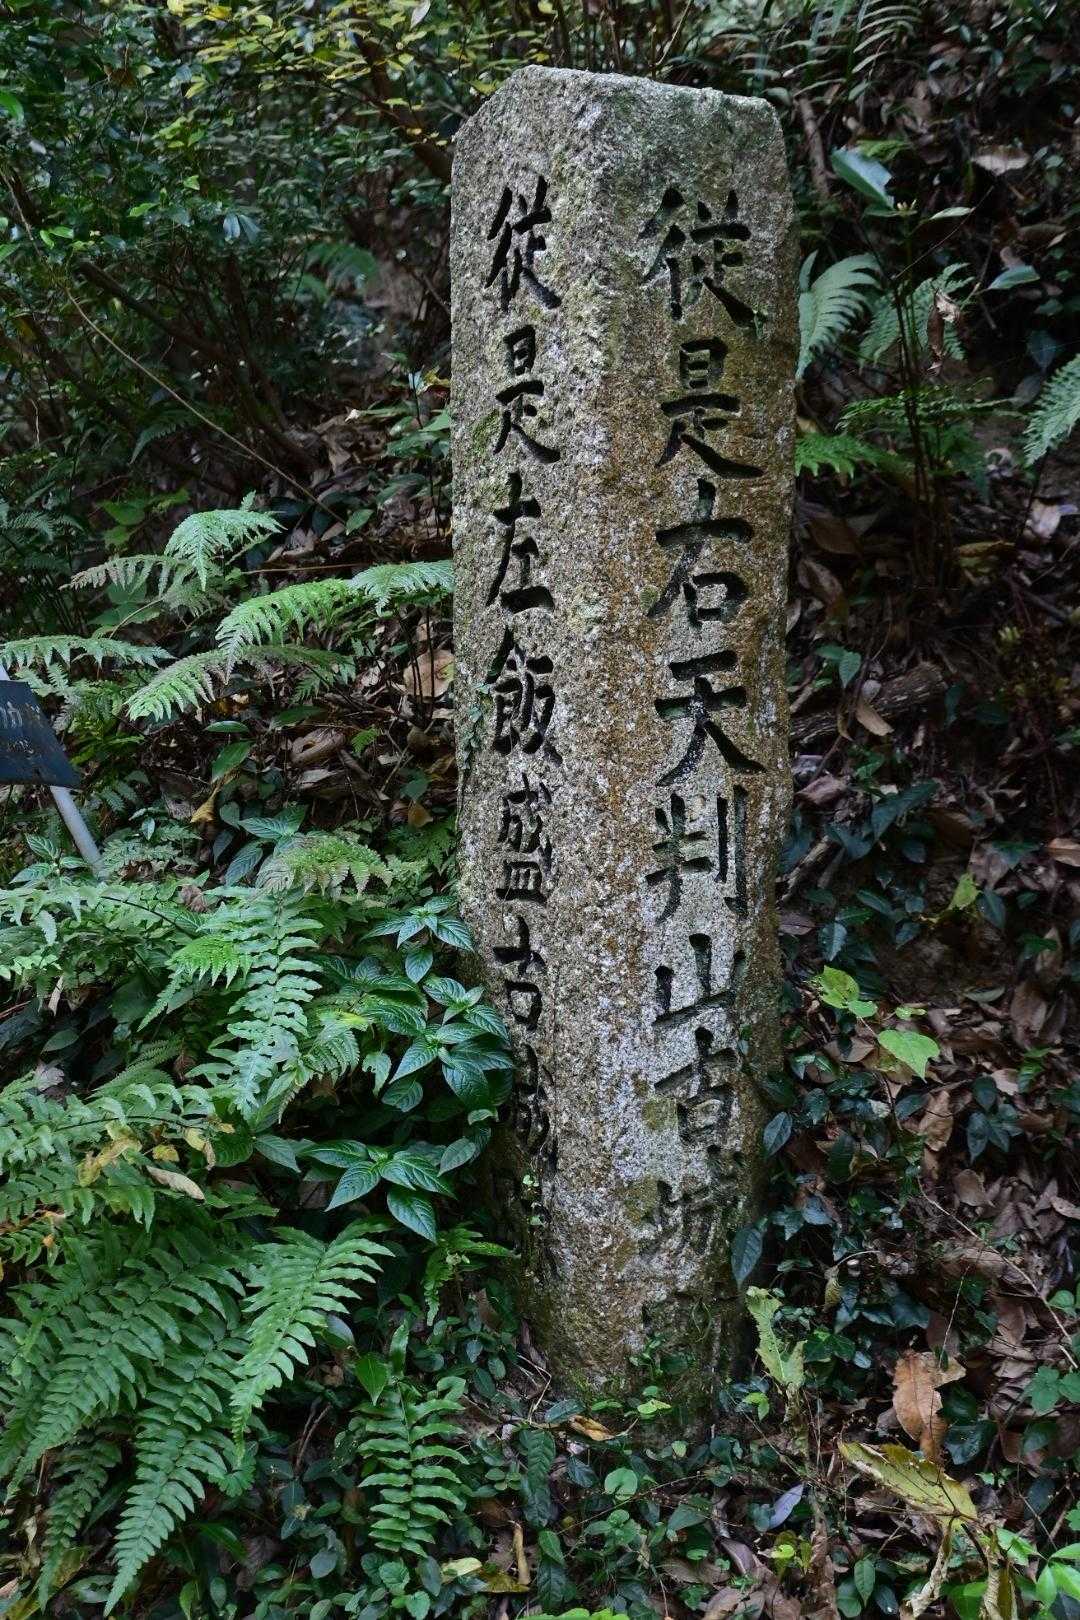 從是右天判山古戦
從是左飯盛古城